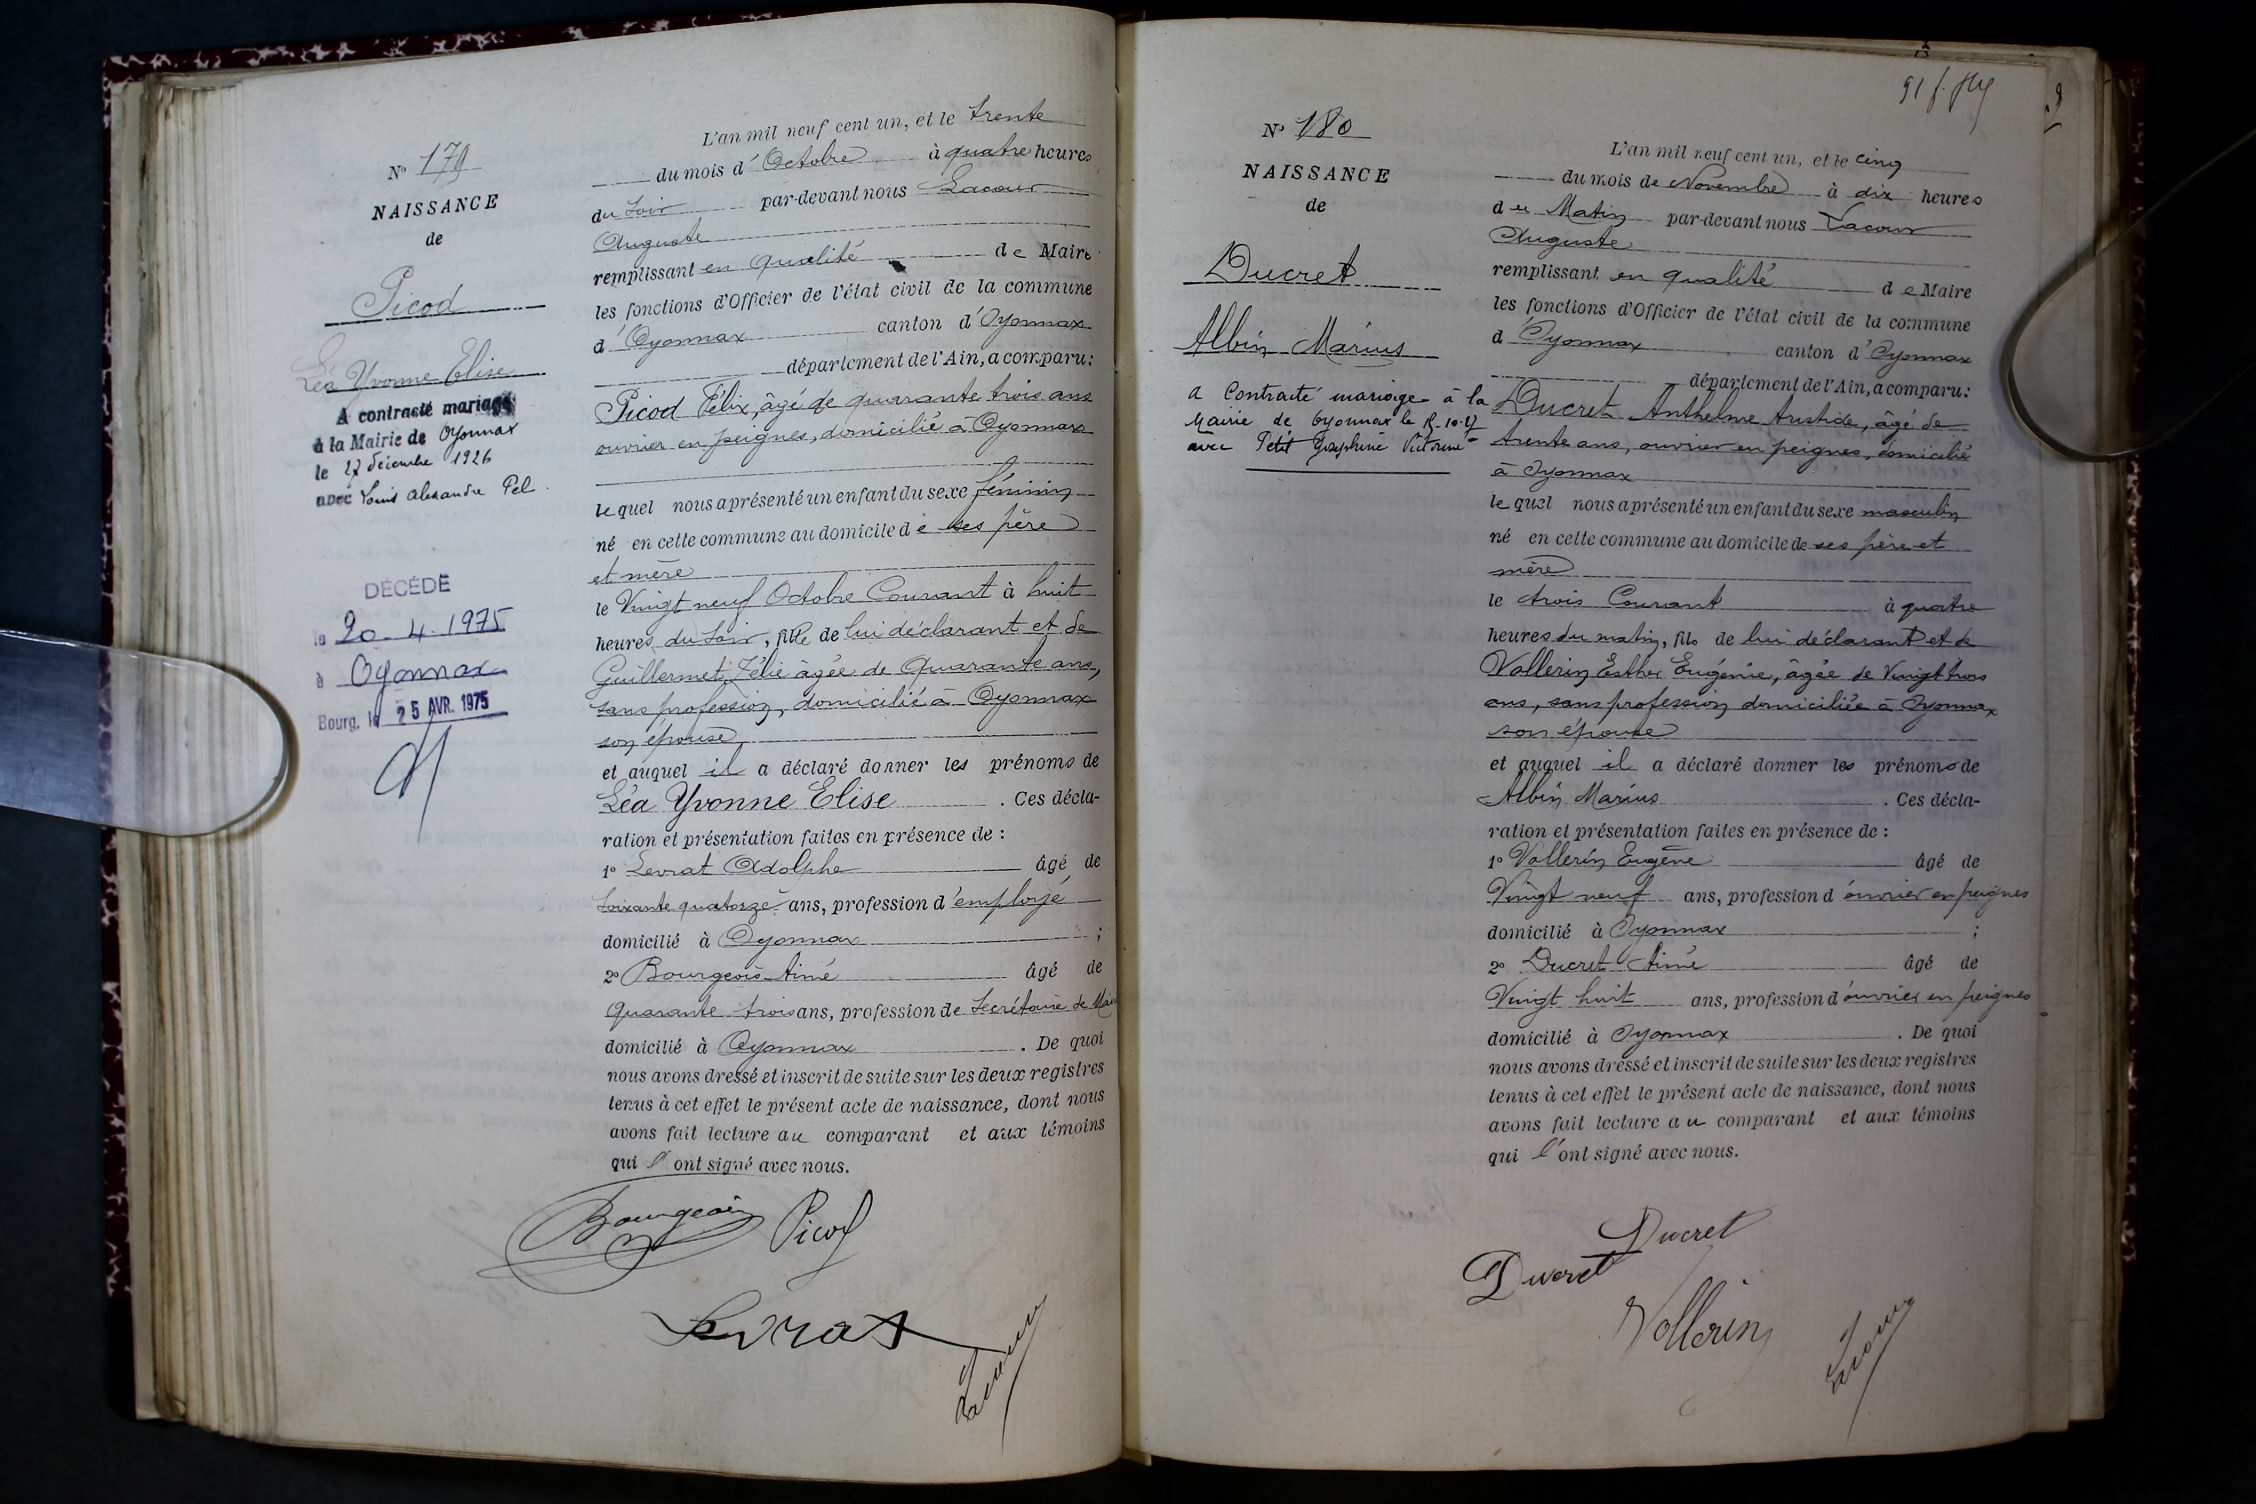 N° 179
NAISSANCE
de
Picod
Léa Yvonne Elise
A contracté mariage
à la Mairie de Oyonnax
le 27 décembre 1926
avec Louis Alexandre Pel
DÉCÉDÉ
le 20.4.1975
à Oyonnax
Bourg, le 25 AVR. 1975
L'an mil neuf cent un, et le trente
du mois d'Octobre à quatre heures
du soir par-devant nous Lacour
Auguste
remplissant en qualité de Maire
les fonctions d'Officier de l'état civil de la commune
d'Oyonnax canton d'Oyonnax
département de l'Ain, a comparu:
Picod Félix, âgé de quarante trois ans
ouvrier en peignes, domicilié à Oyonnax
lequel nous a présenté un enfant du sexe féminin
né en cette commune au domicile de ses père
et mère
le Vingt neuf Octobre Courant à huit
heures du soir, fille de lui déclarant et de
Guillermet Zélie âgée de Quarante ans,
sans profession, domicilié à Oyonnax
son épouse
et auquel il a déclaré donner les prénoms de
Léa Yvonne Elise. Ces décla-
ration et présentation faites en présence de :
1° Levrat Adolphe âgé de
soixante quatorze ans, profession d'employé
domicilié à Oyonnax ;
2° Bourgeois Aimé âgé de
Quarante trois ans, profession de Secrétaire de Mairie
domicilié à Oyonnax. De quoi
nous avons dressé et inscrit de suite sur les deux registres
tenus à cet effet le présent acte de naissance, dont nous
avons fait lecture au comparant et aux témoins
qui l'ont signé avec nous.
Bourgeois Picod
Levrat
Lacour
91 f.
N° 180
NAISSANCE
de
Ducret
Albin Marius
A Contracté mariage à la
Mairie de Oyonnax le
avec Petit Joséphine Victorine
L'an mil neuf cent un, et le cinq
du mois de Novembre à dix heures
du Matin par-devant nous Lacour
Auguste
remplissant en qualité de Maire
les fonctions d'Officier de l'état civil de la commune
d'Oyonnax canton d'Oyonnax
département de l'Ain, a comparu:
Ducret Anthelme Aristide, âgé de
trente ans, ouvrier en peignes, domicilié
à Oyonnax
lequel nous a présenté un enfant du sexe masculin
né en cette commune au domicile de ses père et
mère
le trois Courant à quatre
heures du matin, fils de lui déclarant et de
Vollerin Esther Eugénie, âgée de Vingt trois
ans, sans profession domiciliée à Oyonnax
son épouse
et auquel il a déclaré donner les prénoms de
Albin Marius. Ces décla-
ration et présentation faites en présence de :
1° Vollerin Eugène âgé de
Vingt neuf ans, profession d'ouvrier en peignes
domicilié à Oyonnax ;
2° Ducret Aimé âgé de
Vingt huit ans, profession d'ouvrier en peignes
domicilié à Oyonnax. De quoi
nous avons dressé et inscrit de suite sur les deux registres
tenus à cet effet le présent acte de naissance, dont nous
avons fait lecture au comparant et aux témoins
qui l'ont signé avec nous.
Ducret
Ducret
Vollerin
Lacour